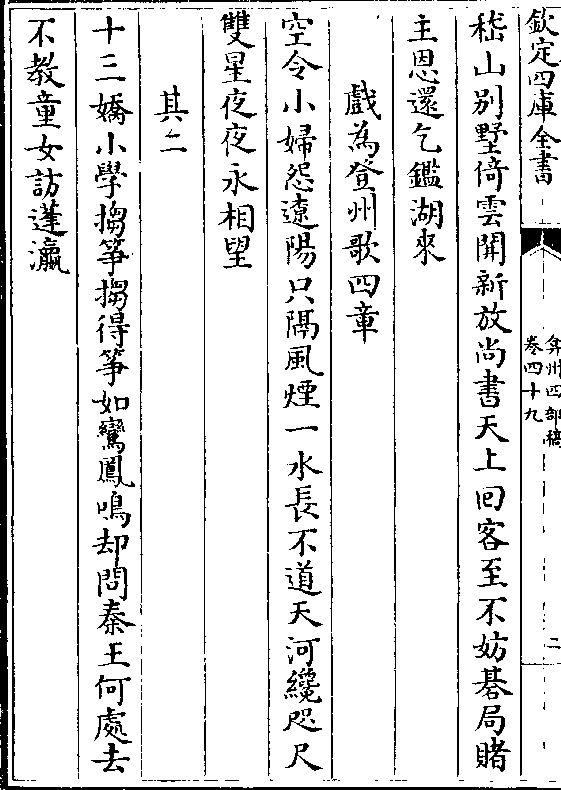 欽定四庫全書
弇州四部稿
卷四十九
二
嵇山别墅倚雲開新放尚書天上回客至不妨棊局賭
主恩還乞鑑湖來
戲為登州歌四章
空令小婦怨遼陽只隔風煙一水長不道天河纔咫尺
雙星夜夜永相望
其二
十三嬌小學搊箏搊得箏如鸞鳳鳴却問秦王何處去
不教童女訪蓬瀛